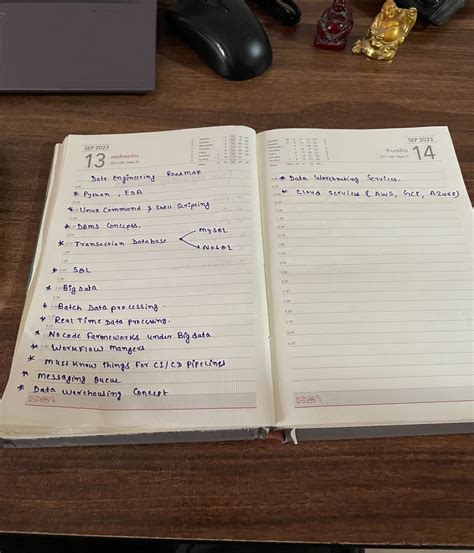 SEP 2023
13 wednesday
Data Engineering Roadmap
* Python, ESA
* Linux Command & Shell Scripting
* DBMS Concepts.
* Transaction Database
MySQL
NoSQL
* SQL
* Big data
* Batch Data processing.
* Real Time Data processing.
* No code Farameworks under Big data
* Workflow Mangers
* Must know things For CI/CD Pipelines
* Messaging Queue
* Data Warehousing Concept
SEP 2023
thursday 14
* Data Warehousing Services.
* Cloud Services ( AWS, GCP, Azure)